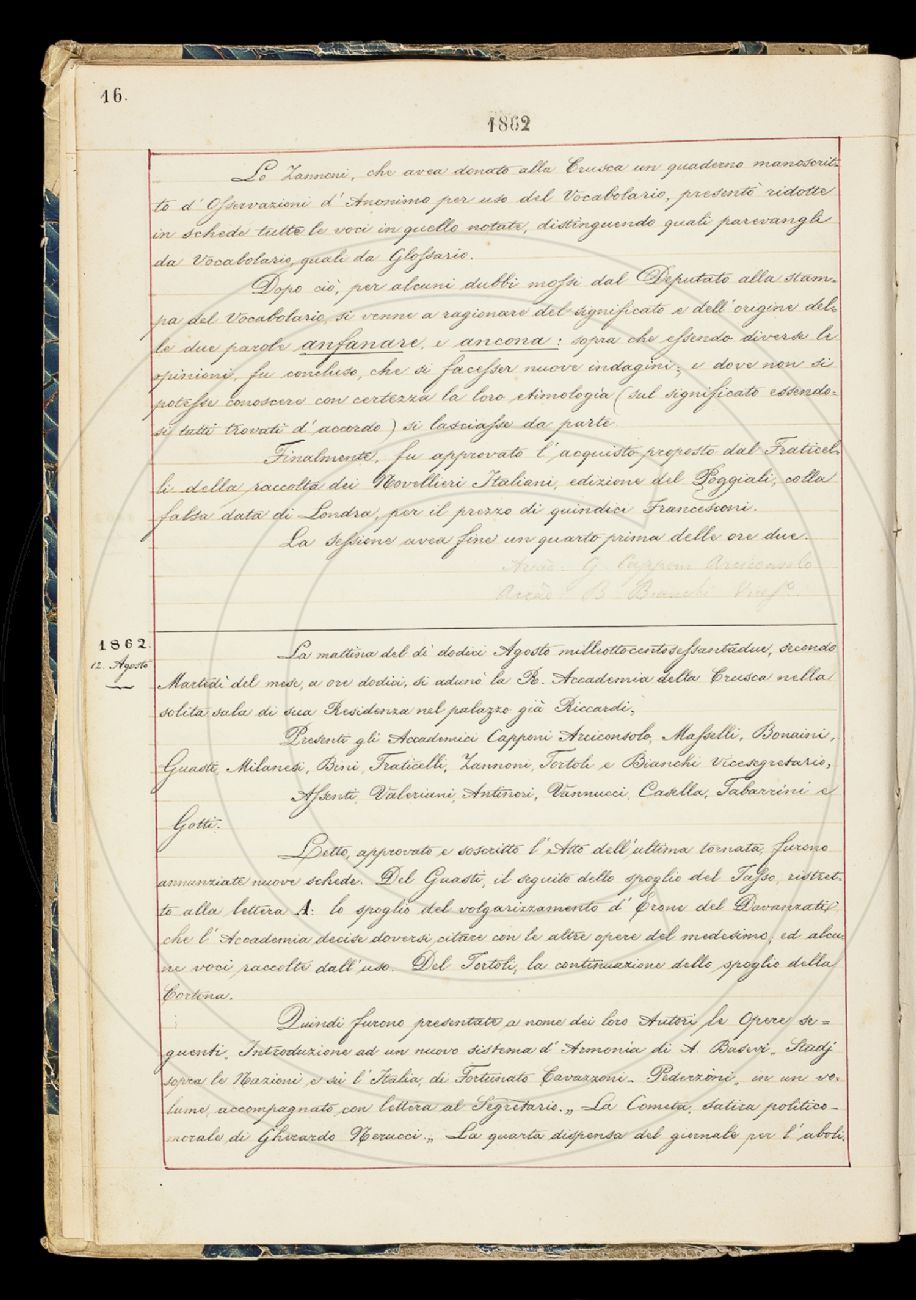 16.
1862
Lo Zannoni, che avea donato alla Crusca un quaderno manoscrit-
to d'Osservazioni d'Anonimo per uso del Vocabolario, presentò ridotte
in schede tutte le voci in quello notate, distinguendo quali parevangli
da Vocabolario, quali da Glossario.
Dopo ciò, per alcuni dubbi mossi dal Deputato alla stam-
pa del Vocabolario, si venne a ragionare del significato e dell'origine del-
le due parole anfanare, e ancona: sopra che essendo diverse le
opinioni, fu concluso, che si facesser nuove indagini; e dove non si
potesse conoscere con certezza la loro etimologia (sul significato essendo-
si tutti trovati d'accordo) si lasciasse da parte.
Finalmente, fu approvato l'acquisto proposto dal Fraticel-
li della raccolta dei Novellieri Italiani, edizione del Poggiali, colla
falsa data di Londra, per il prezzo di quindici Francesconi.
La sessione avea fine un quarto prima delle ore due.
Accad. G. Capponi Arciconsolo
Accad. B. Bianchi Vices.o
1862.
12. Agosto
La mattina del dì dodici Agosto milleottocentosessantadue, secondo
Martedì del mese, a ore dodici, si adunò la R. Accademia della Crusca nella
solita sala di sua Residenza nel palazzo già Riccardi.
Presenti gli Accademici Capponi Arciconsolo, Masselli, Bonaini,
Guasti, Milanesi, Bini, Fraticelli, Zannoni, Tortoli e Bianchi Vicesegretario,
Assenti, Valeriani, Antinori, Vannucci, Casella, Tabarrini e
Gotti.
Letto, approvato e soscritto l'Atto dell'ultima tornata, furono
annunziate nuove schede. Del Guasti, il seguito dello spoglio del Tasso, ristret-
to alla lettera A: lo spoglio del volgarizzamento d'Erone del Davanzati,
che l'Accademia decise doversi citare con le altre opere del medesimo; ed alcu-
ne voci raccolte dall'uso. Del Tortoli, la continuazione dello spoglio della
Cortona.
Quindi furono presentate a nome dei loro Autori le Opere se=
guenti. Introduzione ad un nuovo sistema d'Armonia di A. Basevi. Studj
sopra le Nazioni e su l'Italia, di Fortunato Cavazzoni-Pederzini, in un vo-
lume, accompagnato con lettera al Segretario. „ La Cometa, satira politico-
morale di Gherardo Nerucci. „ La quarta dispensa del giornale per l'aboli-